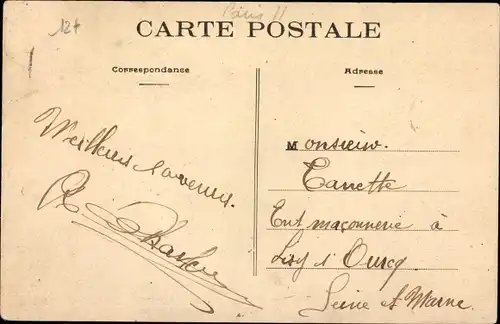 12+
Paris 11
CARTE POSTALE
Correspondance
Adresse
Meilleurs souvenirs.
Monsieur.
Tanette
Ent maçonnerie à
Lizy s/ Ourcq
Seine et Marne.